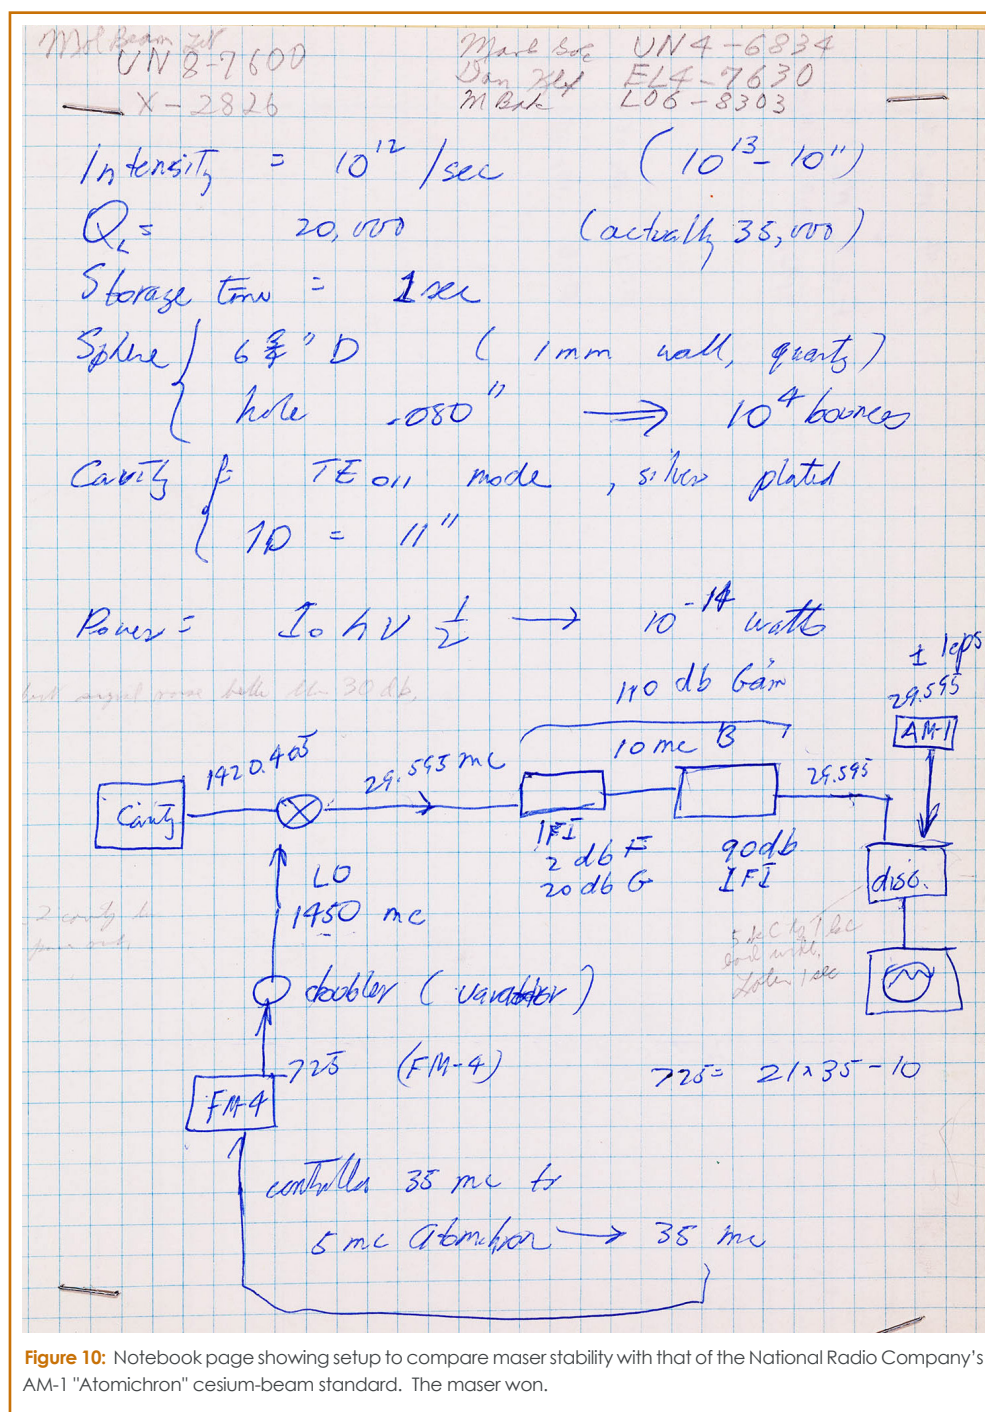 Mol Beam
UN 8-7600
X-2826
UN4-6834
Dan EL4-7630
M LO6-8303
Intensity = 10¹² /sec (10¹³ - 10¹¹)
Q_L = 20,000 (actually 35,000)
Storage time = 1 sec
Sphere { 6 3/4" D ( 1 mm wall, quartz)
hole .080" ⟹ 10⁴ bounces
Cavity { TE 011 mode, silver plated
ID = 11"
Power = I₀ h ν 1/2 → 10⁻¹⁴ watts
± 1 cps
signal noise better than 30 db,
110 db Gain
29.595
AM-1
10 mc B
1420.405
29.595 mc
29.595
Cavity
IFI
2 db F
20 db G
90 db
IFI
disc.
LO
1450 mc
doubler (varactor)
725 (FM-4)
725 = 21 x 35 - 10
FM-4
controlled 35 mc to
5 mc Atomichron → 35 mc
Figure 10: Notebook page showing setup to compare maser stability with that of the National Radio Company's
AM-1 "Atomichron" cesium-beam standard. The maser won.